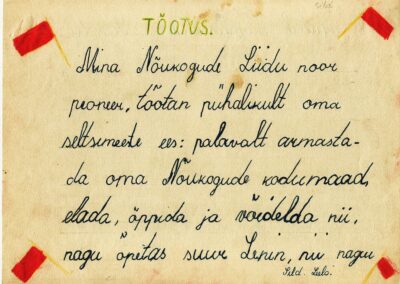 TÕOTUS.
Mina Nõukogude Liidu noor
pioneer, tõotan pühalikult oma
seltsimeete ees: palavalt armasta-
da oma Nõukogude kodumaad,
elada, õppida ja võidelda nii,
nagu õpetas suur Lenin, nii nagu